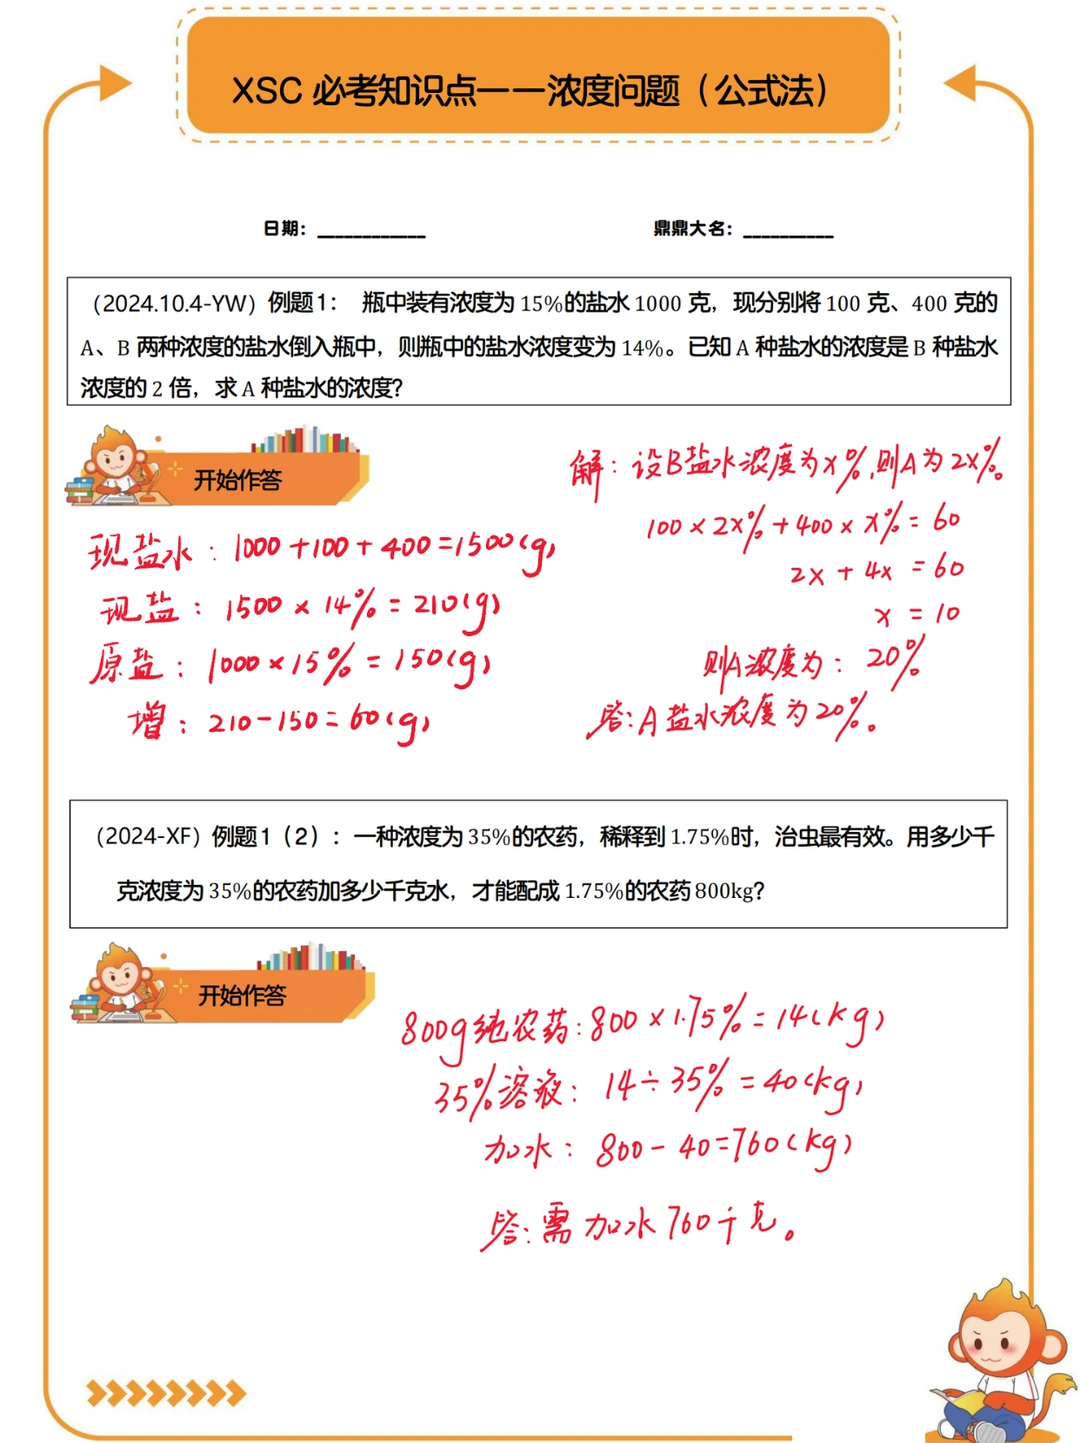 XSC 必考知识点——浓度问题（公式法）
日期：____________ 鼎鼎大名：__________
（2024.10.4-YW）例题1： 瓶中装有浓度为 15%的盐水 1000 克，现分别将 100 克、400 克的
A、B 两种浓度的盐水倒入瓶中，则瓶中的盐水浓度变为 14%。已知 A 种盐水的浓度是 B 种盐水
浓度的 2 倍，求 A 种盐水的浓度？
开始作答
现盐水：1000+100+400=1500(g)
现盐：1500×14%=210(g)
原盐：1000×15%=150(g)
增：210-150=60(g)
解：设B盐水浓度为x%,则A为2x%。
100×2x%+400×x%=60
2x+4x=60
x=10
则A浓度为：20%
答:A盐水浓度为20%。
（2024-XF）例题1（2）：一种浓度为 35%的农药，稀释到 1.75%时，治虫最有效。用多少千
克浓度为 35%的农药加多少千克水，才能配成 1.75%的农药 800kg？
开始作答
800g纯农药:800×1.75%=14(kg)
35%溶液：14÷35%=40(kg)
加水：800-40=760(kg)
答:需加水760千克。